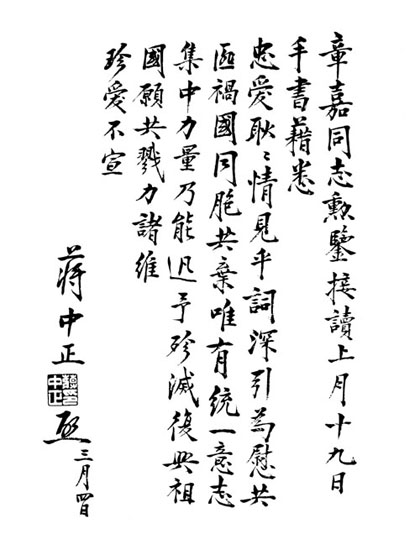 章嘉同志勳鑒接讀上月十九日
手書藉悉
忠愛耿〻情見乎詞深引為慰共
匪禍國同胞共棄唯有統一意志
集中力量乃能迅予殄滅復興祖
國願共戮力諸維
珍愛不宣
蔣中正
蔣中正
啟
三月四日